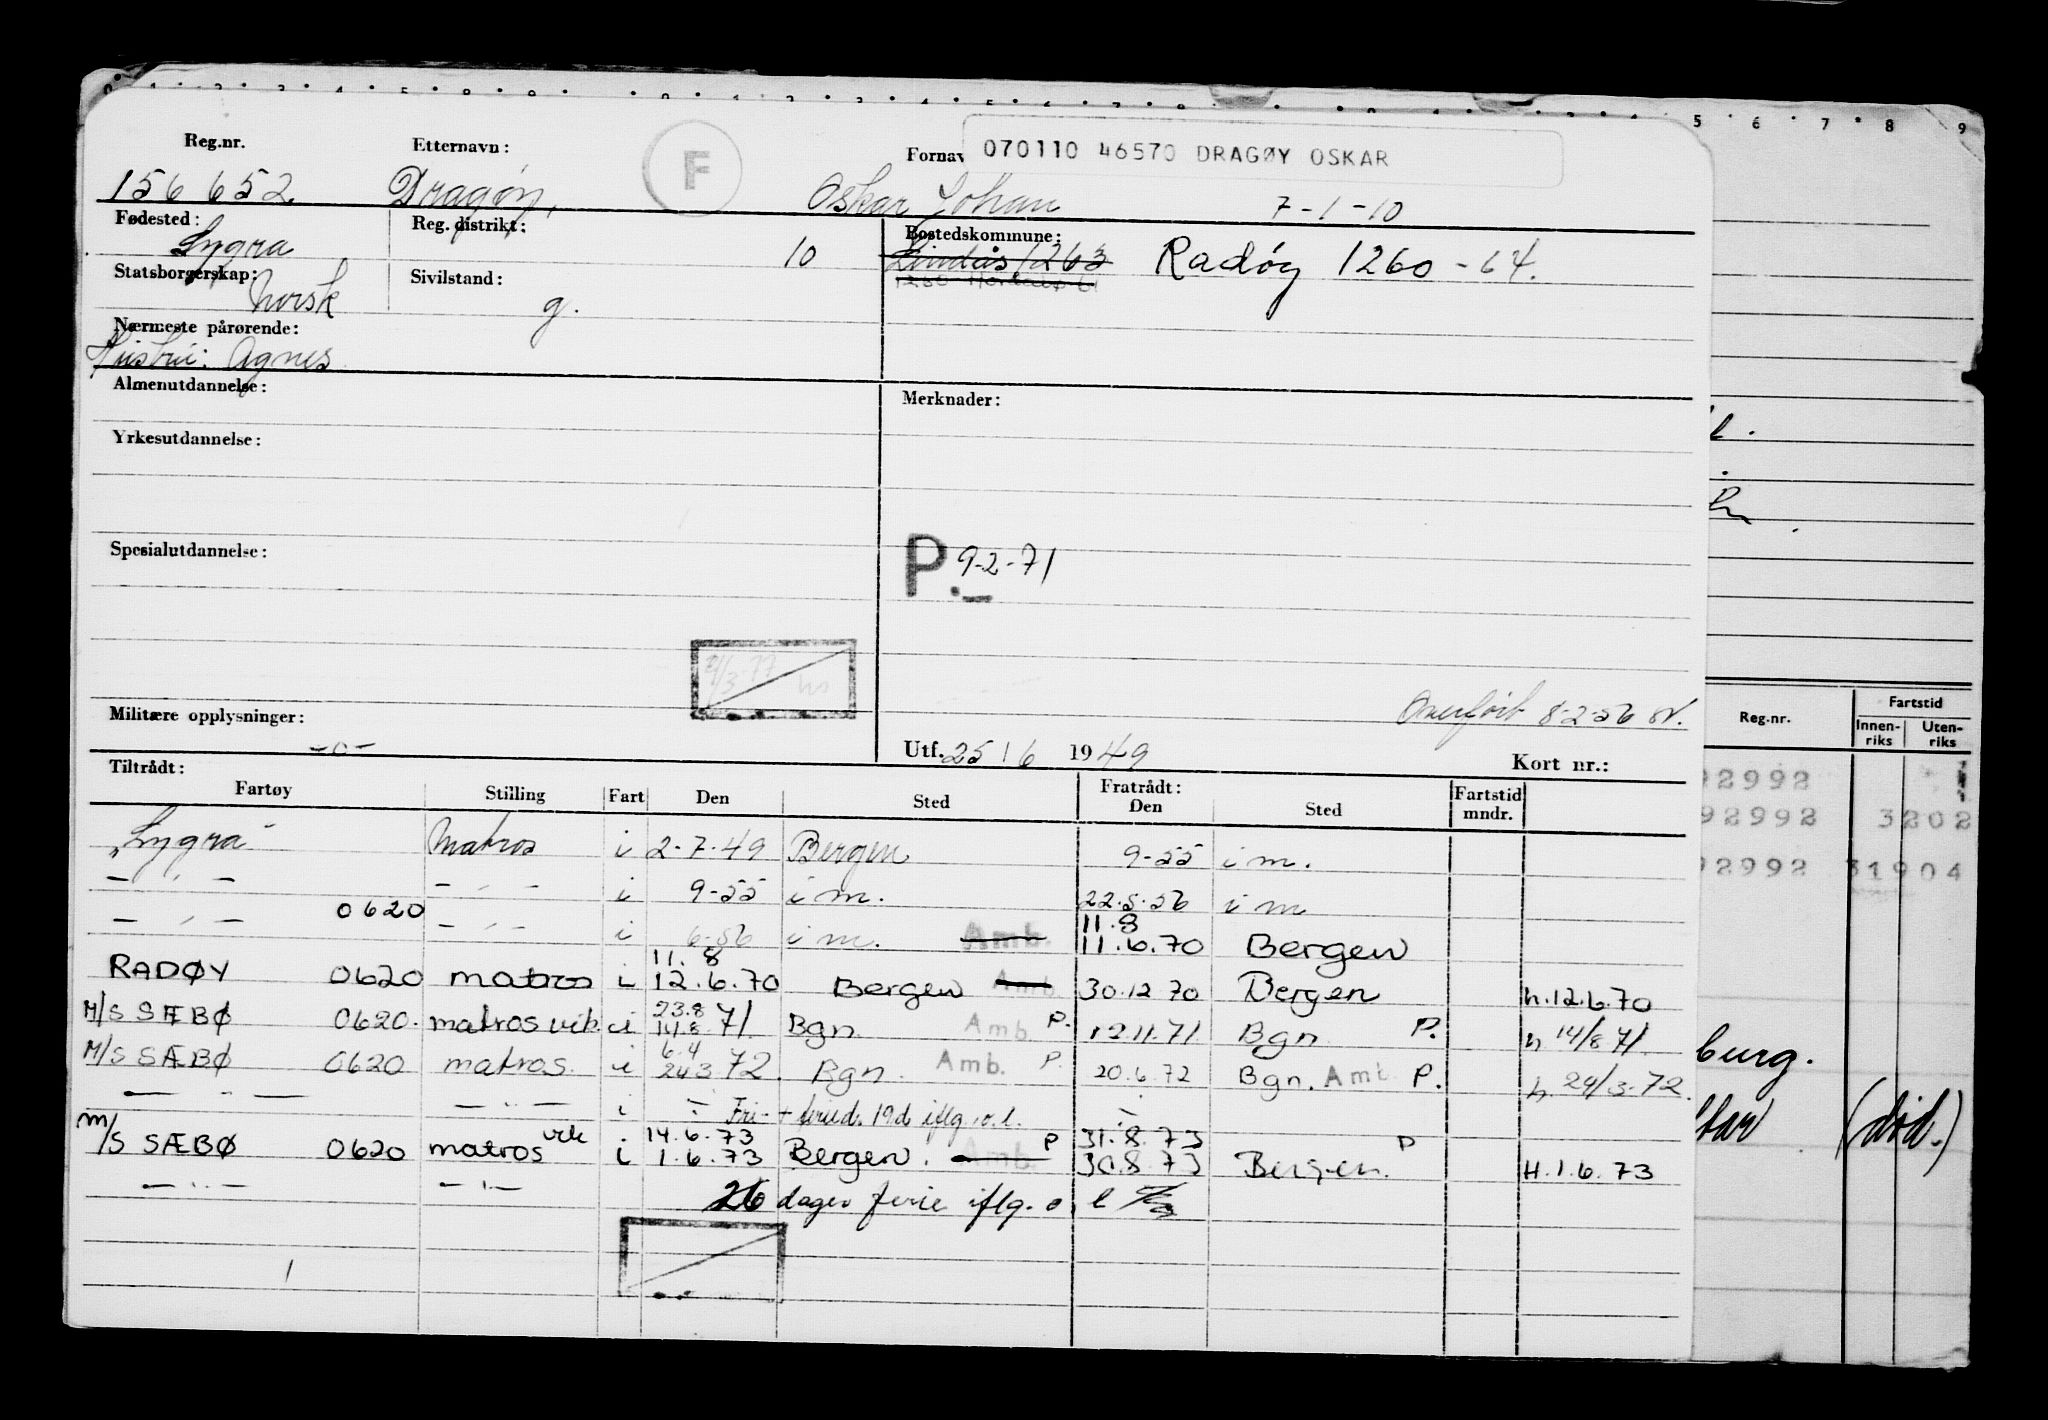 070110 46570 DRAGØY OSKAR
Reg.nr. Etternavn: F Fornav
156 652. Dragøy, Oskar Johan 7-1-10
Fødested: Reg. distrikt: Bostedskommune:
Lygra 10 Lindås 1263 Radøy 1260-64.
Statsborgerskap: Sivilstand:
Norsk g.
Nærmeste pårørende:
Hustru: Agnes
Almenutdannelse: Merknader:
Yrkesutdannelse:
Spesialutdannelse: P. 9-2-71
Overført 8-2-56
Militære opplysninger:
-o- Utf. 25/6 1949 Kort nr.:
Tiltrådt: Fratrådt:
Fartøy Stilling Fart Den Sted Den Sted Fartstid mndr.
"Lygra" Matros i 2-7-49 Bergen 9-55 i m.
— " — — " — i 9-55 i m. 22.5.56 i m
— " — 0620 — " — i 6-56 i m. Amb. 11.8 11.6.70 Bergen
RADØY 0620 matros i 11.8 12.6.70 Bergen Amb. 30.12 70 Bergen h.12.6.70
M/S SÆBØ 0620. matros vik. i 23.8 14.8.71 Bgn. Amb. P. 12.11.71 Bgn P. h 14/8 71.
M/S SÆBØ 0620 matros. i 6.4 24.3 72. Bgn. Amb. P. 20.6.72 Bgn. Amb. P. h. 24/3-72.
— " — — " — i Fri- + 19d iflg. o.l.
M/S SÆBØ 0620 matros vik i 14.6.73 1.6.73 Bergen. Amb. P 31.8.73 30.8.73 Bergen. P H.1.6.73
— " — — " — 26 dager ferie iflg. o.l
Reg.nr. Fartstid
Innen-riks Uten-riks
92992
92992 3202
92992 31904
burg.
(død.)